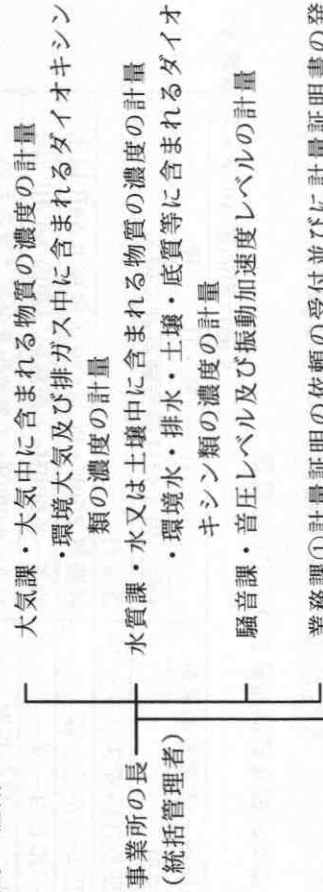 大気課・大気中に含まれる物質の濃度の計量
・環境大気及び排ガス中に含まれるダイオキシン
類の濃度の計量
事業所の長
(統括管理者)
水質課・水又は土壌中に含まれる物質の濃度の計量
・環境水・排水・土壌・底質等に含まれるダイオ
キシン類の濃度の計量
騒音課・音圧レベル及び振動加速度レベルの計量
業務課①計量証明の依頼の受付並びに計量証明書の発